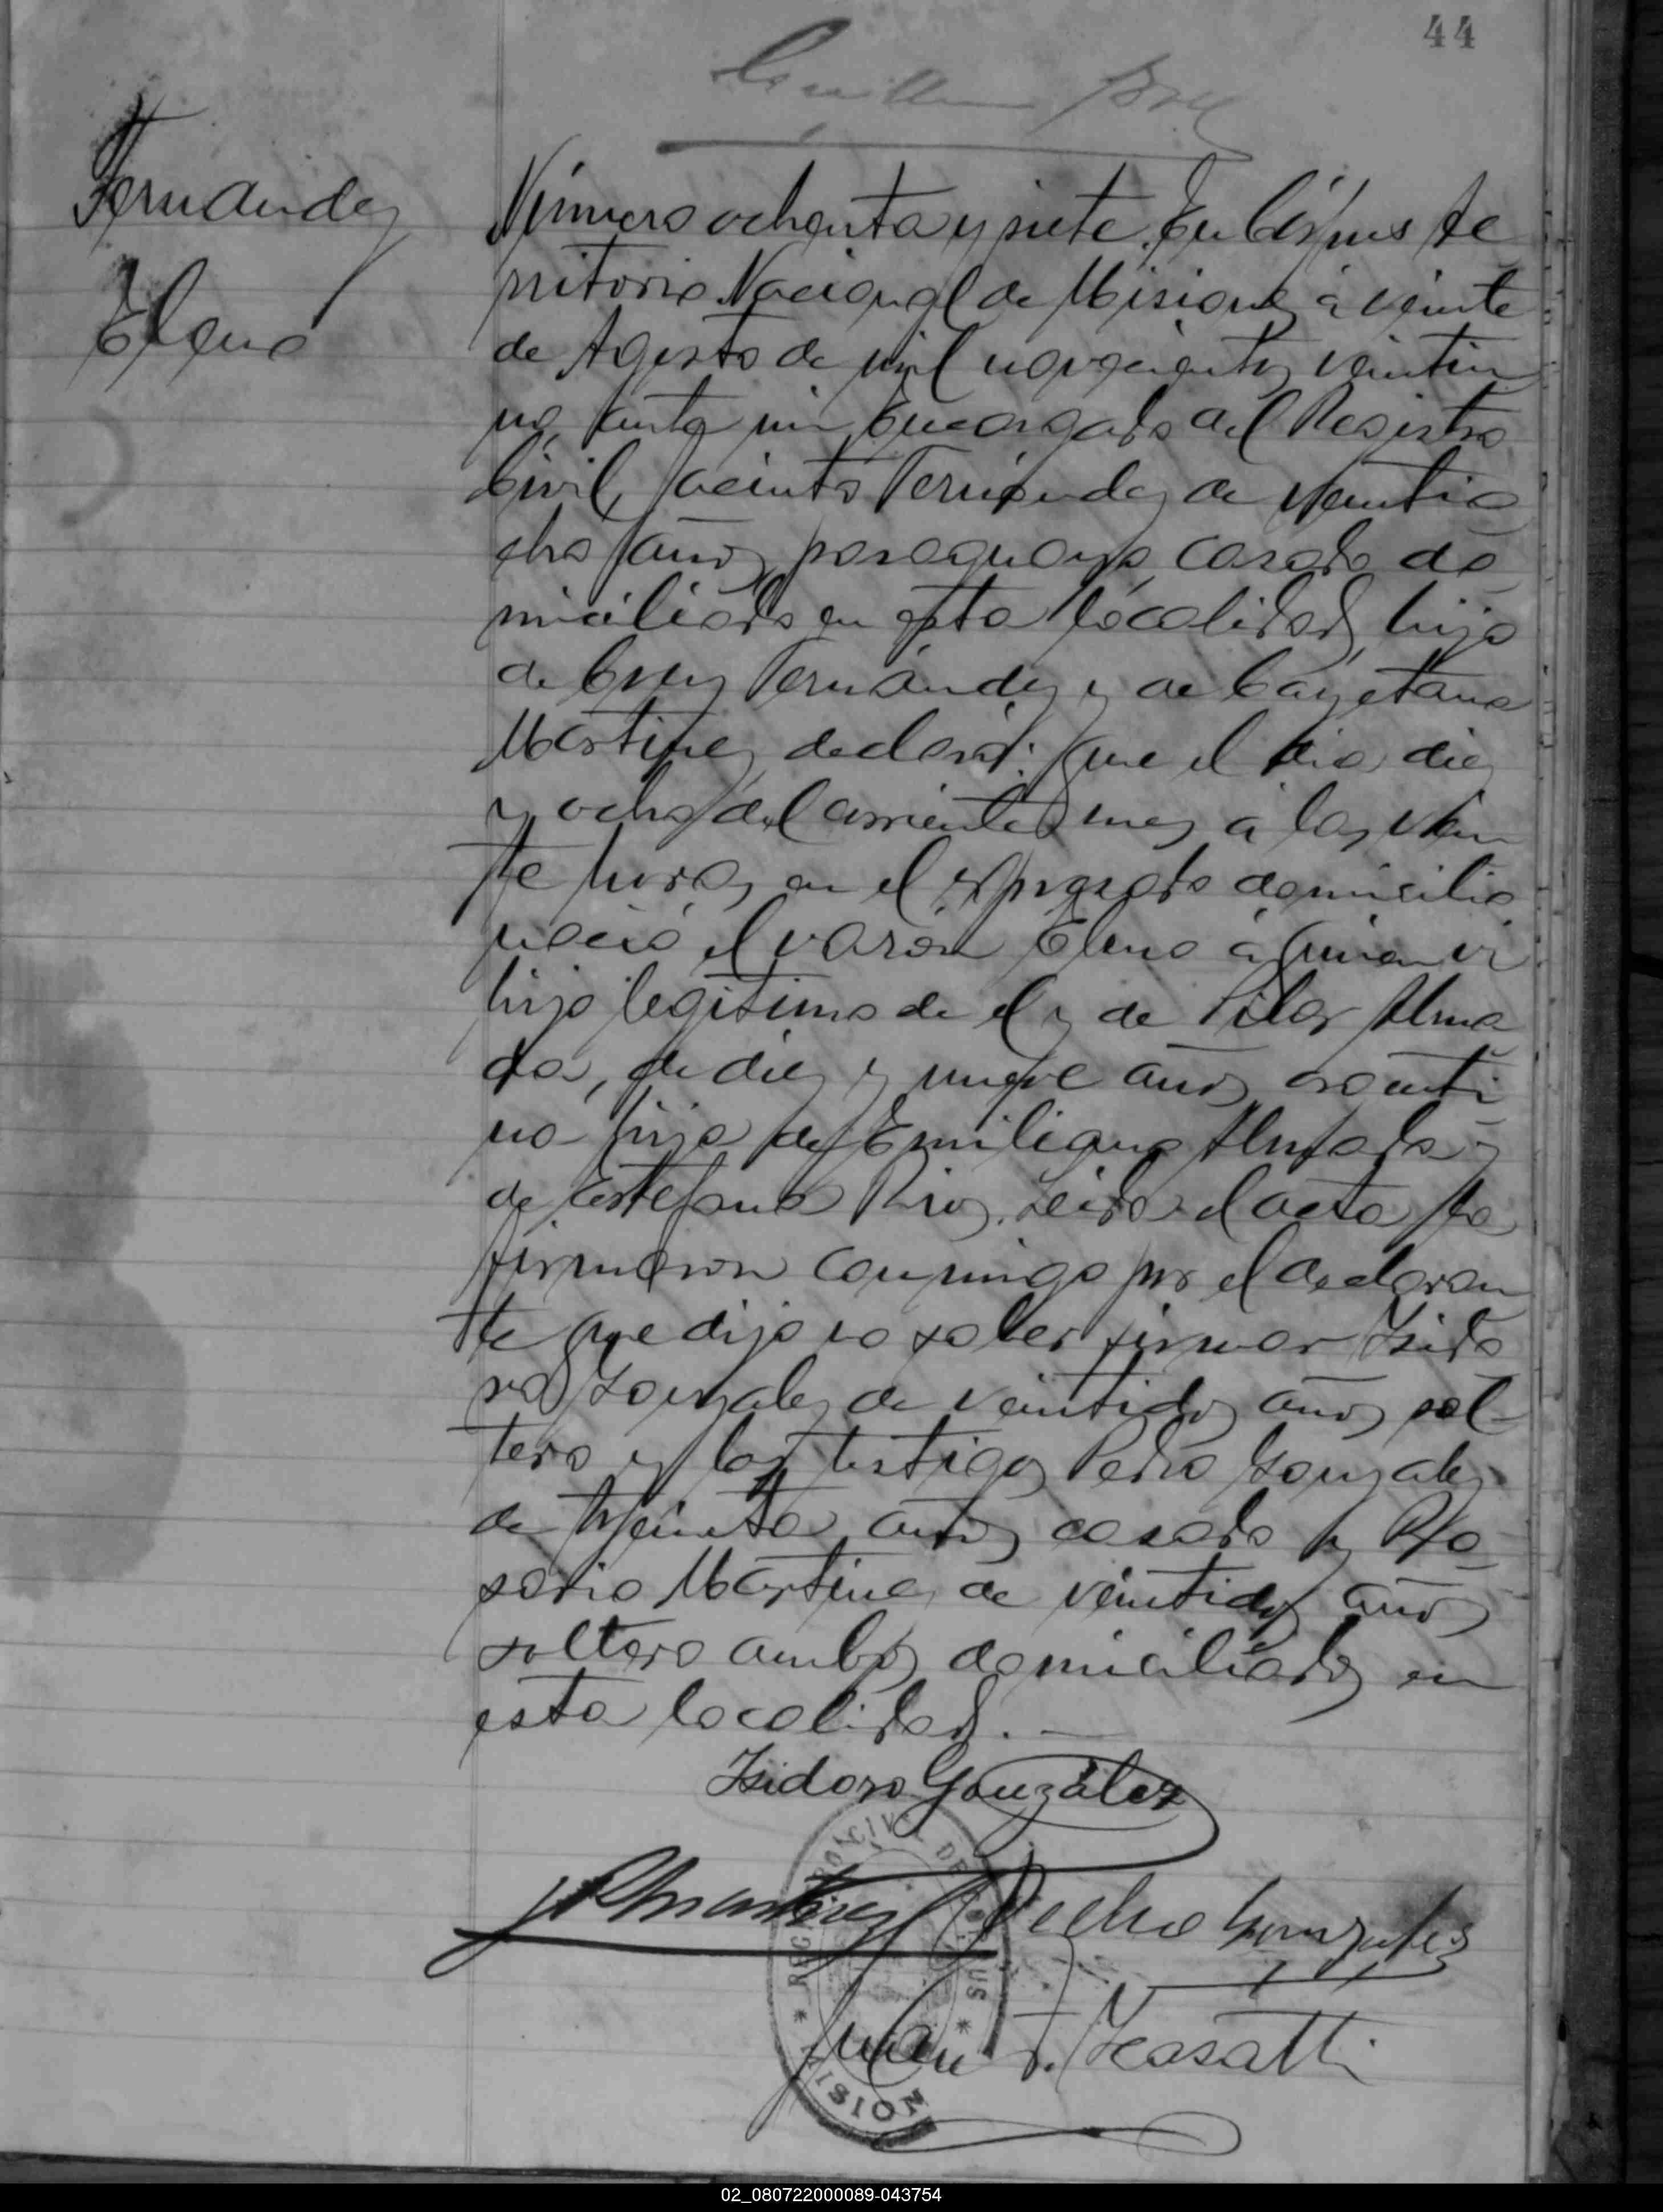 44
Fernandez
Eleno
Número ochenta y siete. En Corpus te
rritorio Nacional de Misiones á veinte
de Agosto de mil novecientos veintiu
no, ante mi Encargado del Registro
Civil, Jacinto Fernández de veintio
cho años, paraguayo, casado do
miciliado en esta localidad, hijo
de Cruz Fernández y de Cayetana
Martinez, declaró: que el dia diez
y ocho del corriente mes á las vein
te horas, en el expresado domicilio
nació el varón Eleno á quien vi
hijo legitimo de el y de Pilar Alma
da, de diez y nueve años, argenti
na hija de Emiliano Almada y
de Estefana Rios. Leida el acta la
firmaron conmigo por el declaran
te que dijo no saber firmar Isido
ro Gonzalez de veintidos años sol
tero y los testigos Pedro Gonzalez
de treinta años casado y Ro
sario Martinez de veintidos años
soltero ambos domiciliados en
esta localidad.
Isidoro González
R Martinez Pedro Gonzalez
Juan
REG CIVIL DE CORPUS
MISIONES
02_080722000089-043754